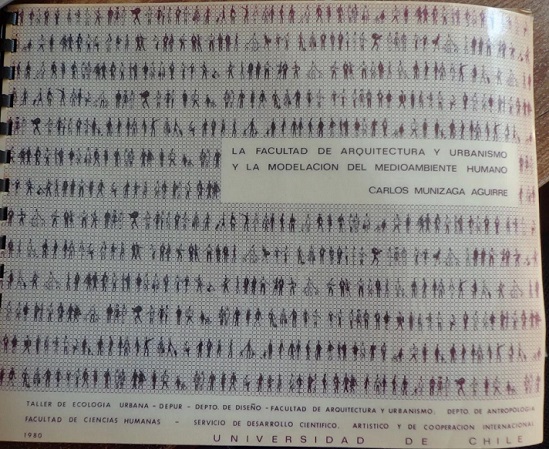 LA FACULTAD DE ARQUITECTURA Y URBANISMO
Y LA MODELACION DEL MEDIOAMBIENTE HUMANO
CARLOS MUNIZAGA AGUIRRE
TALLER DE ECOLOGIA URBANA - DEPUR - DEPTO DE DISEÑO - FACULTAD DE ARQUITECTURA Y URBANISMO. DEPTO DE ANTROPOLOGIA
FACULTAD DE CIENCIAS HUMANAS - SERVICIO DE DESARROLLO CIENTIFICO, ARTISTICO Y DE COOPERACION INTERNACIONAL
1980 UNIVERSIDAD DE CHILE